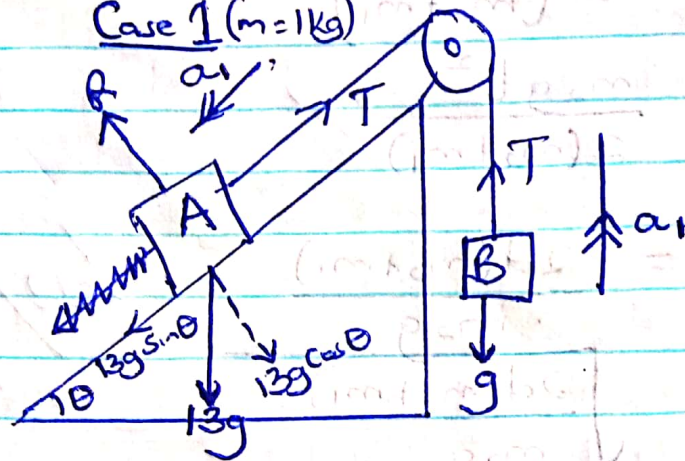 Case 1 (m=1kg)
a₁
R
T
A
T
a₁
B
13g sinθ
13g cosθ
θ
13g
g